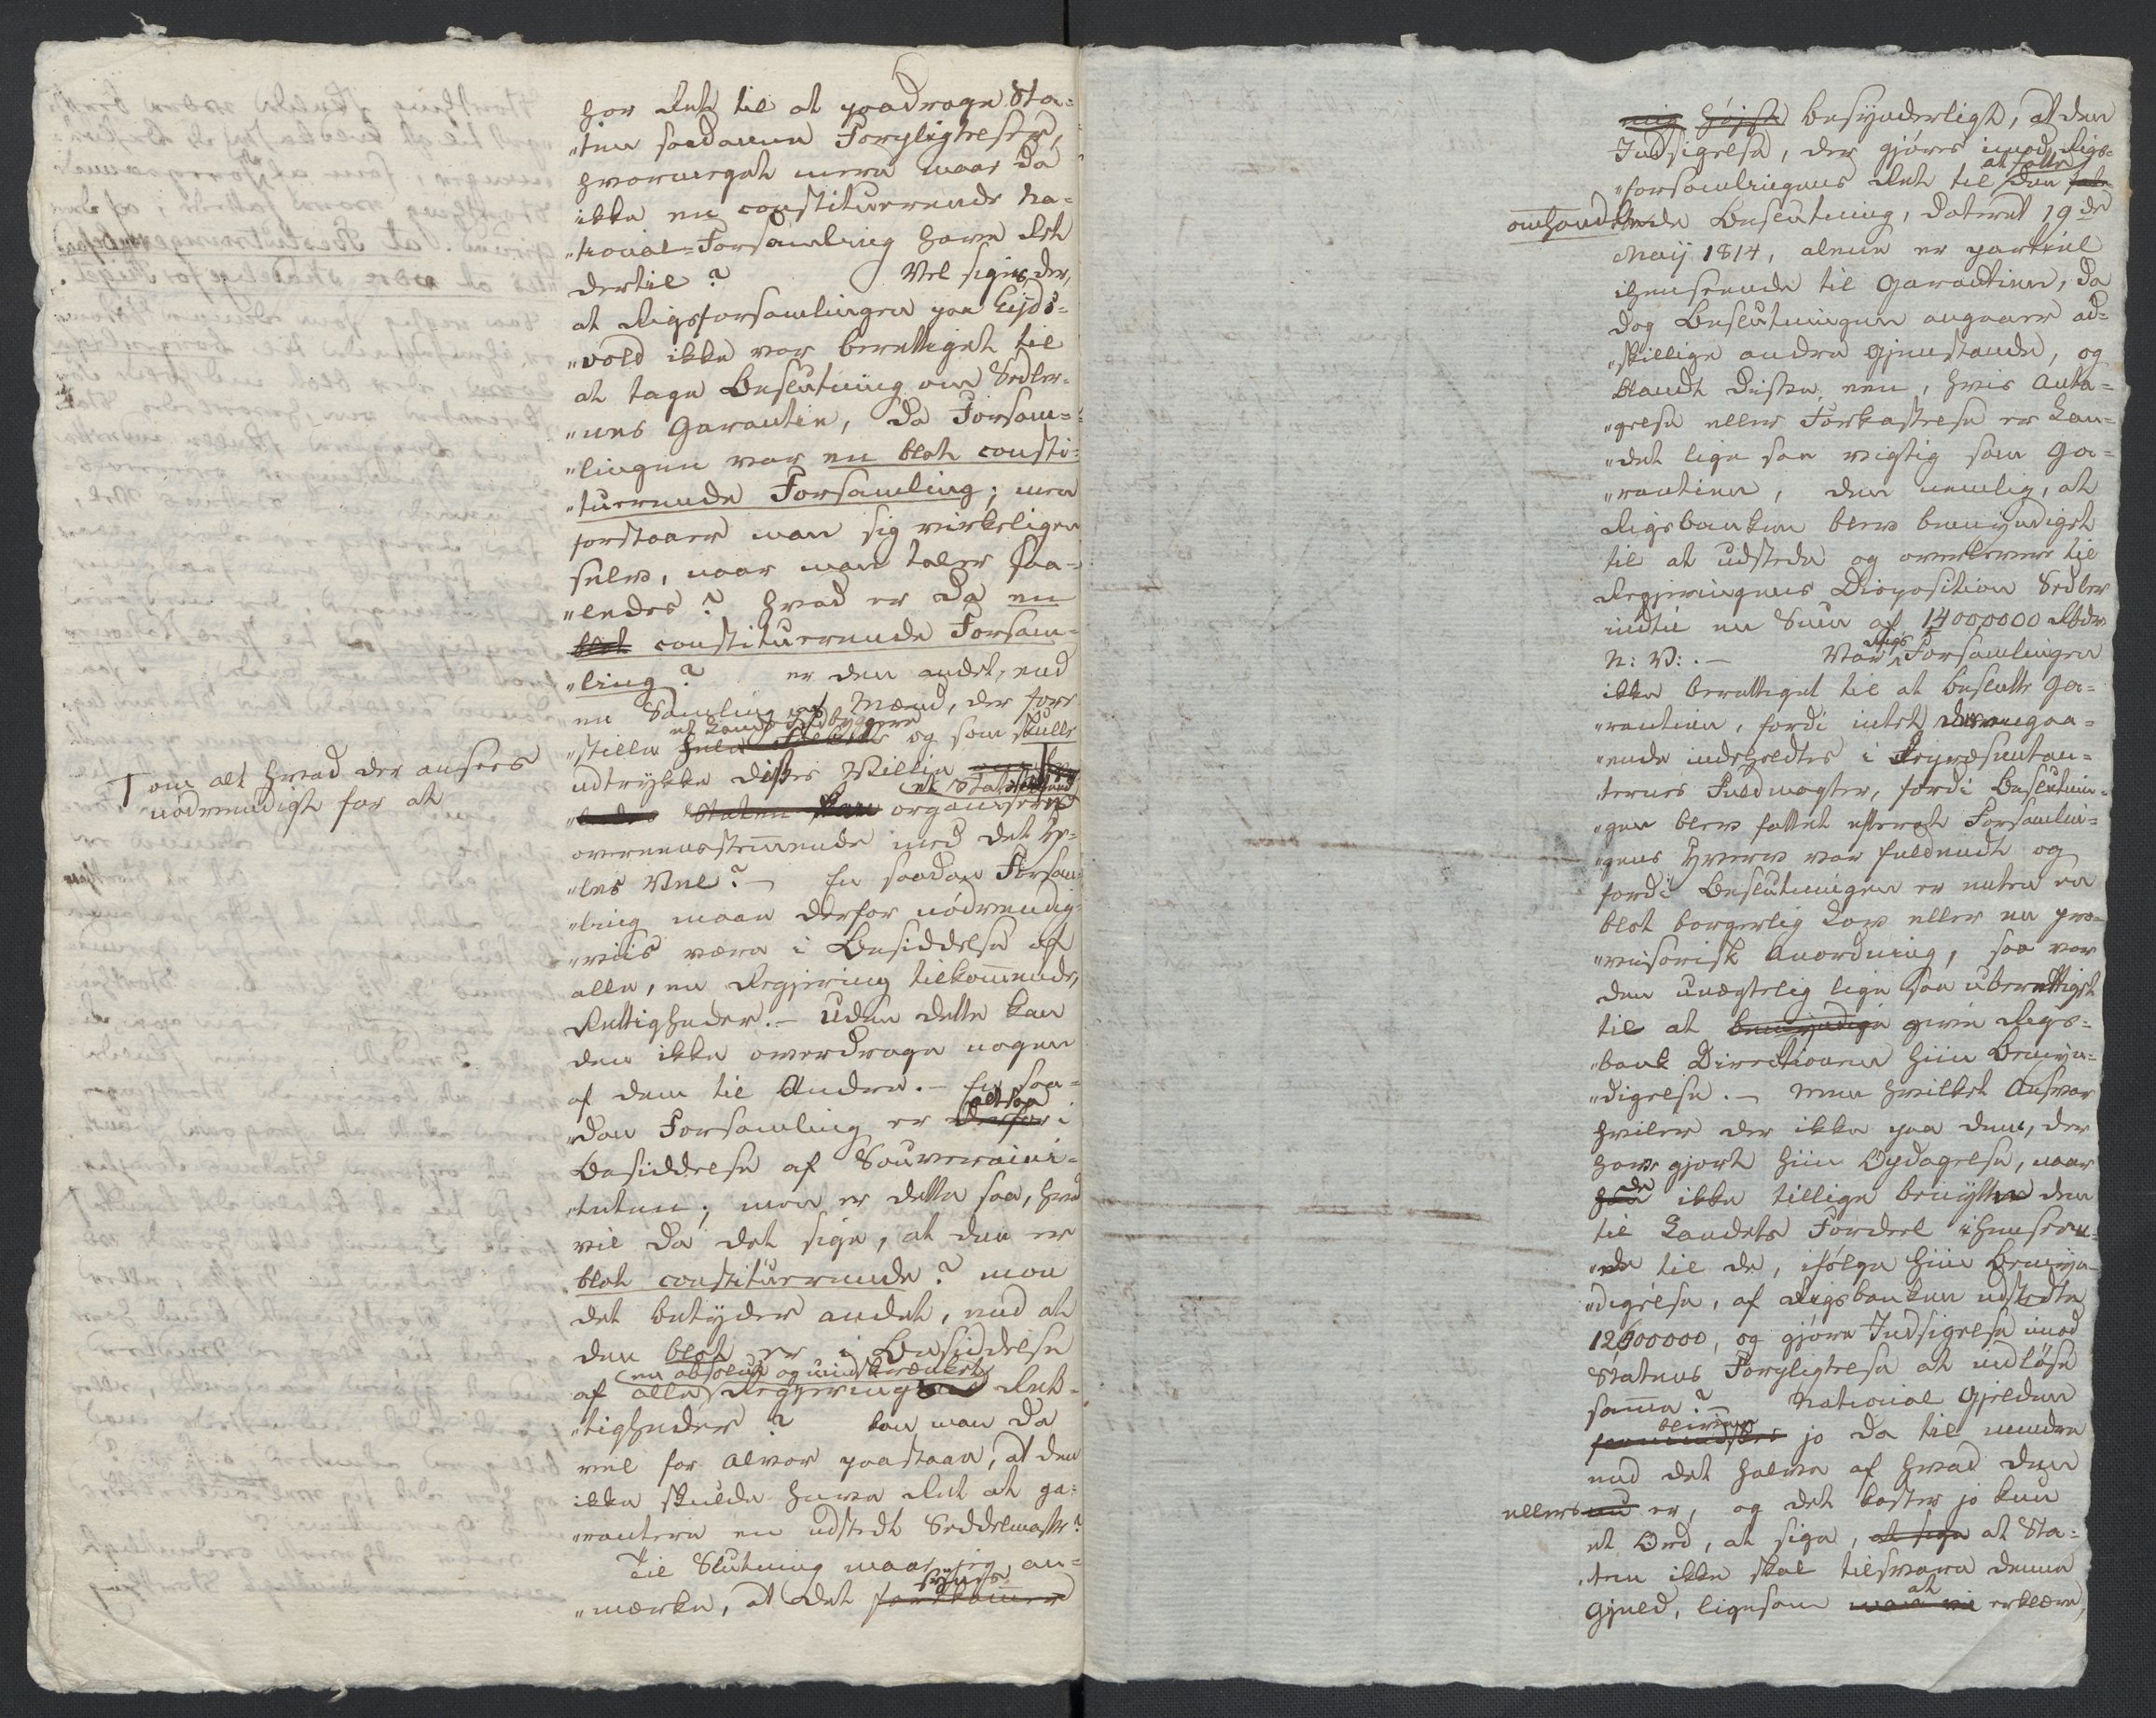 har Ret til at paadrage Sta-
"ten saadanne Forpligtelser,
hvormeget mere maae da
ikke en constituerende Na-
"tional-Forsamling have Ret
dertil? Vel siges der,
at Rigsforsamlingen paa Eids-
"vold ikke var berettiget til
at tage Beslutning om Sedler-
"nes Garantie, da Forsam-
"lingen var en blot consti-
"tuerende Forsamling; men
forstaaer man sig virkeligen
selv, naar man taler saa-
"ledes? Hvad er da en
blot constituerende Forsam-
"ling? er den andet, end
en Samling af Mænd, der fore
et Lands Indbyggere
"stille hele og som skulle
udtrykke disses Villie
T om alt hvad der ansees
nødvendigt for at
et Statsforbund
"ledes Staten kan organiseres
overeensstemmende med det He-
"les Vel? — En saadan Forsam-
"ling maae derfor nødvendig-
"viis være i Besiddelse af
alle, en Regjering tilkommende,
Rettigheder. — Uden dette kan
den ikke overdrage nogen
af dem til Andre. — En saa-
altsaa
"dan Forsamling er derfor i
Besiddelse af Souveraini-
"teten; men er dette saa, hvad
vil da det sige, at den er
blot constituerende? mon
det betyder andet, end at
den blot er i Besiddelse
en absolut og uindskrænket
af alle Regjerings Ret-
"tigheder? kan man da
vel for Alvor paastaae, at den
ikke skulde have Ret at ga-
"rantere en udstedt Seddelmasse?
Til Slutning maae jeg an-
synes
"mærke, at det forekommer
mig højst besynderligt, at den
Indsigelse, der gjøres imod Rigs-
at fatte
"forsamlingens Ret til den
omhandlende Beslutning, dateret 19de
Maij 1814, alene er partiel
ihenseende til Garantien, da
dog Beslutningen angaaer ad-
"skillige andre Gjenstande, og
blandt disse een, hvis Anta-
"gelse eller Forkastelse er Lan-
"det lige saa vigtig som Ga-
"rantien, den nemlig, at
Rigsbanken blev bemyndiget
til at udstede og overlevere til
Regjeringens Disposition Sedler
indtil en Sum af 14000000 Rbdr
N: V: . — Rigs
Var Forsamlingen
ikke berettiget til at beslutte Ga-
"rantien, fordi intet derangaa-
"ende indeholdtes i Repræsentan-
"ternes Fuldmagter, fordi Beslutnin-
"gen blev fattet efterat Forsamlin-
"gens Hverv var fuldendt og
fordi Beslutningen er enten en
blot borgerlig Lov eller en pro-
"visorisk Anordning, saa var
den unægtelig lige saa uberettiget
til at bemyndige give Rigs-
"bank Directionen hiin Bemyn-
"digelse. — Men hvilket Ansvar
hviler der ikke paa dem, der
have gjort hiin Opdagelse, naar
de
han ikke tillige benytte den
til Landets Fordeel ihenseen-
"de til de, ifølge hiin Bemyn-
"digelse, af Rigsbanken udstedte
12600000, og gjøre Indsigelse imod
Statens Forpligtelse at indløse
samme? — National Gjelden
bliver
formindskes jo da til mindre
end det halve af hvad den
ellers nu er, og det koster jo kun
et Ord, at sige, at sige at Sta-
"ten ikke skal tilsvare denne
at
Gjeld, ligesom erklære,